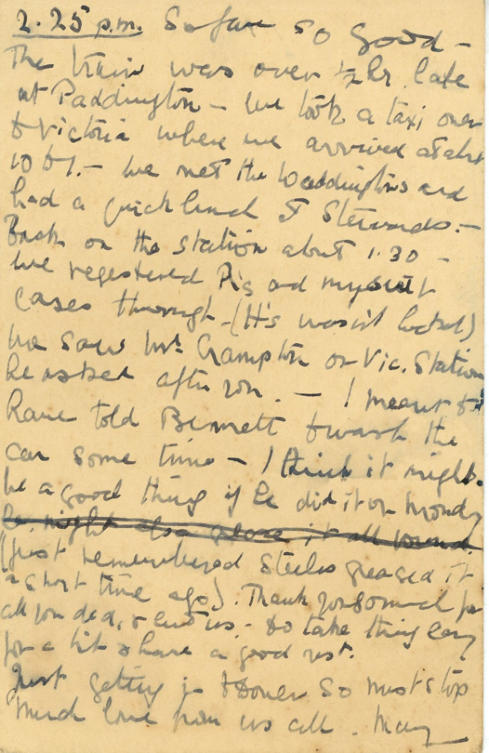 2.25 p.m. So far so good -
The train was over ½ hr. late
at Paddington - we took a taxi over
to Victoria where we arrived at abt
10 to 1. - We met the Waddingtons and
had a quick lunch at Stewards. -
Back on the station about 1.30 -
we registered P's and my suit
cases through - (H's wasn't locked)
We saw Mr. Crampton on Vic. Station
he asked after you. - I meant to
have told Bennett to wash the
car some time - I think it might
be a good thing if he did it on Monday
he might also grease it all round.
(just remembered Steeles greased it
a short time ago). Thank you so much for
all you did, & do take things easy
for a bit & have a good rest.
Just getting in to Dover so must stop
Much love from us all. May